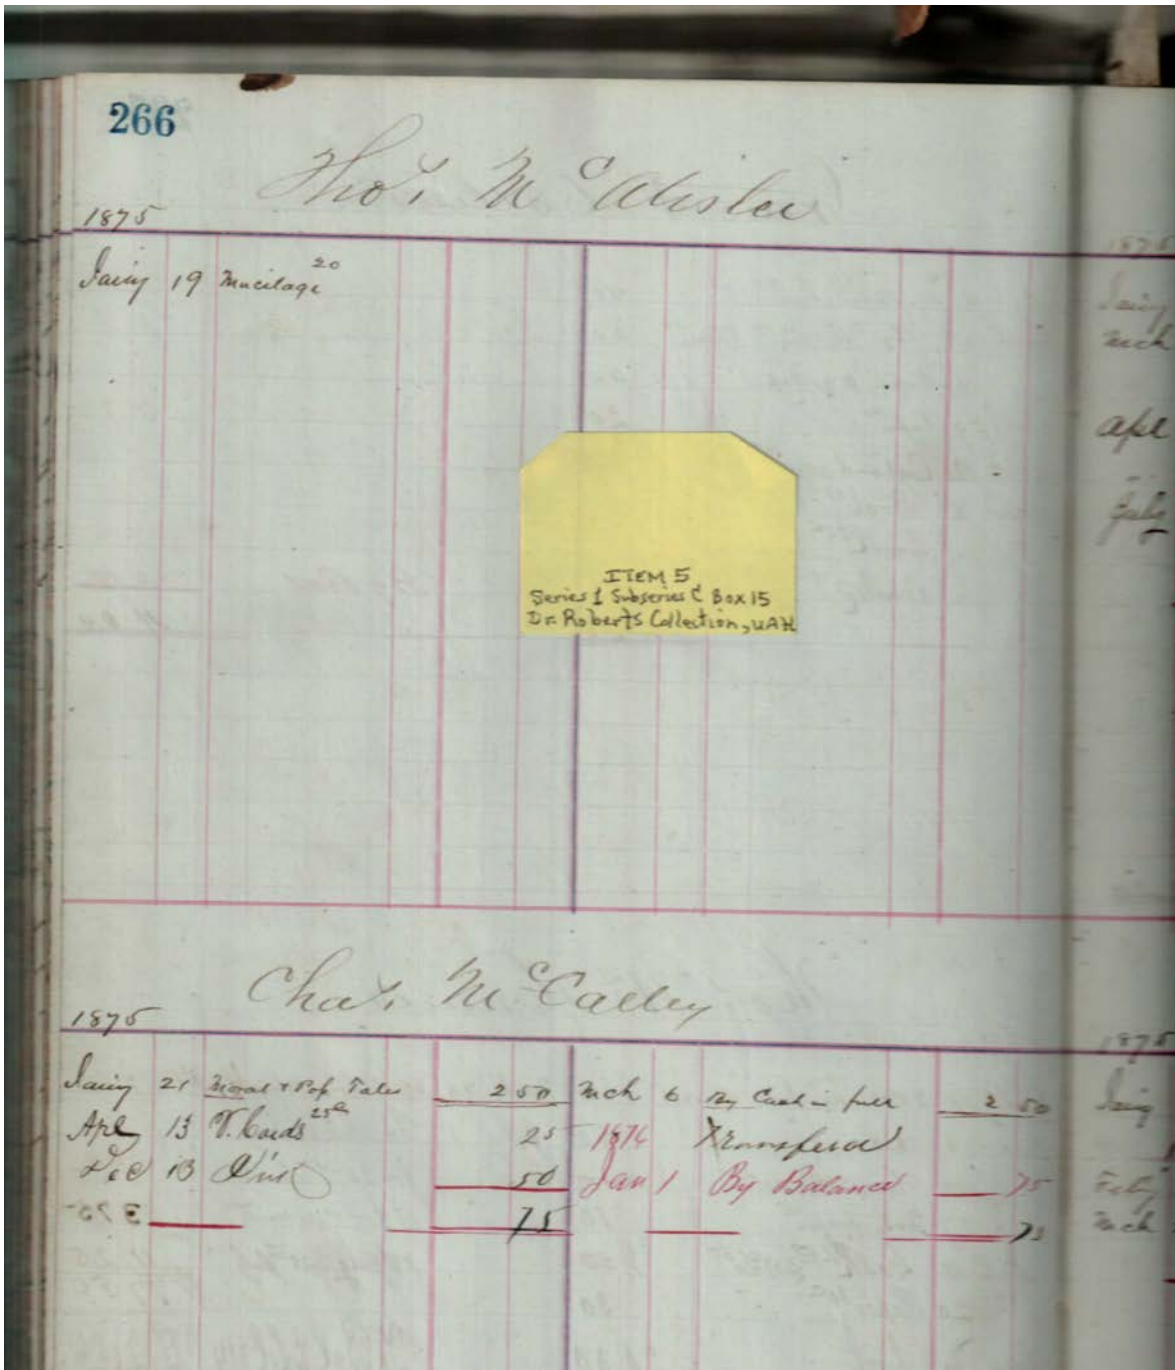 266
Thos. McAlister
1875
Jany 19 Mucilage 20
ITEM 5
Series 1 Subseries C Box 15
Dr. Roberts Collection, UAH
Chas. McCalley
1875
Jany 21 Moral & Pop Tales 2 50 Mch 6 By Cash in full 2 50
Apl 13 V. Cards 25c 25 1876 Transferd
Dec 13 50 Jan 1 By Balance 75
75 75
1875
Jany
Mch
Apl
July
1875
Jany
Feby
Mch